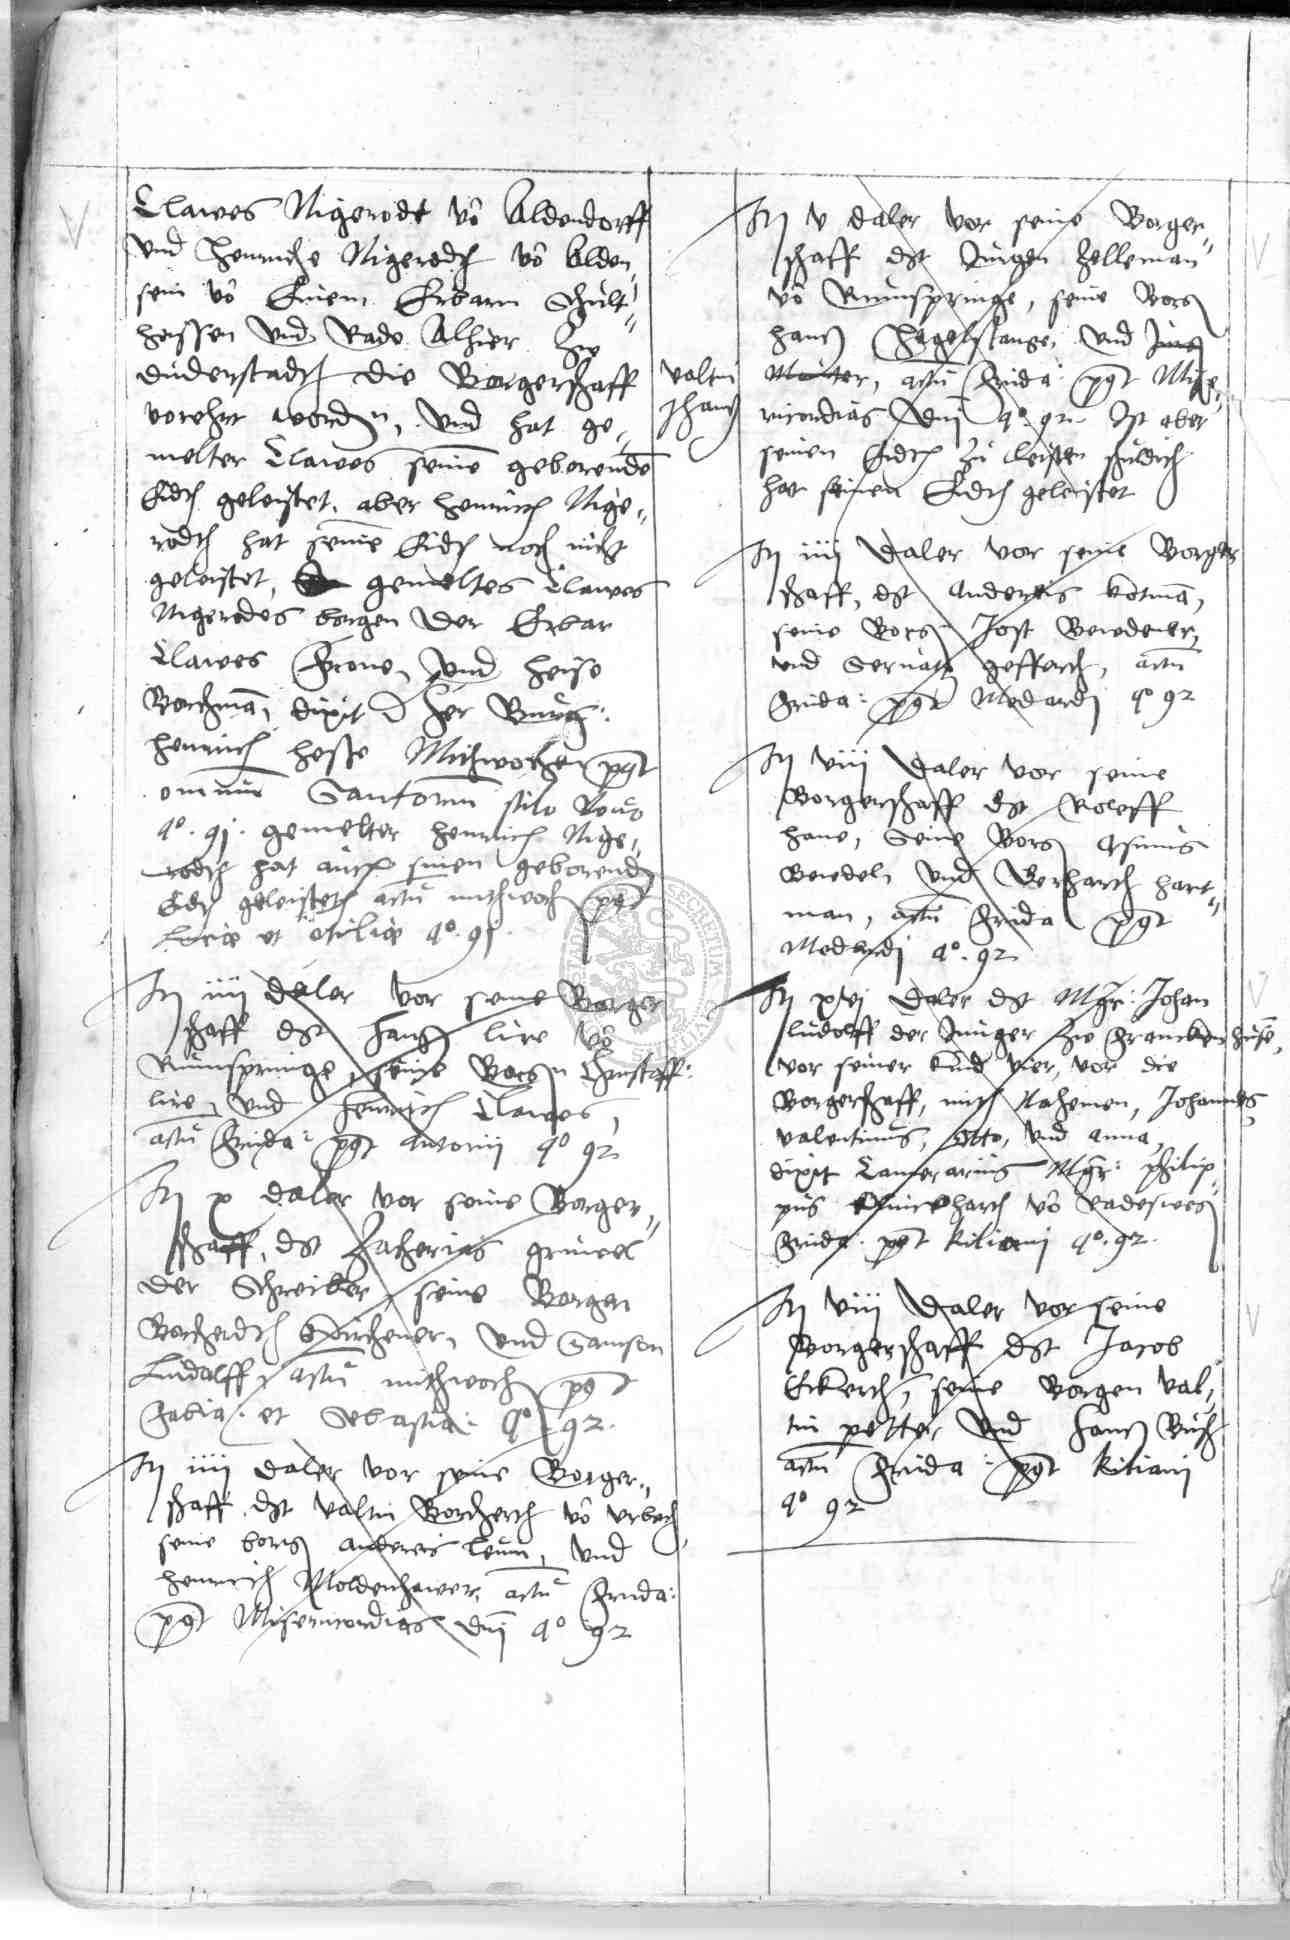 Clawes Nigerodt vō Aldendorff
vnd Henriche Nigerodt vō Alden-
sein vō Einem Erbarn Schült-
heissen vnd Rade Alhier zu
Düderstadt die Borgerschaff
vorehrt worden, vnd hat ge-
melter Clawes seinē geborendē
Eidt geleistet, aber Henrich Nige-
rodt hat seinē Eidt noch nicht
geleistet, gemeltes Clawes
Nigerodes borgen Der Erbar
Clawes Frone, vnd Heiso
Borchmā, dixit d Her Burg:
Henrich Hesse Mithwochen post
omniū Sanctorum stilo Novo
Aº. 91. gemelter Henrich Nige-
rodt hat auch seinen geborend
Eidt geleistet actū mithwoch post
Luciæ et Otiliæ Aº. 91.
It iiii daler vor seine Borger
schaff dt Hans lire vō
Rümspringe, seine Borgn Christoff:
lire, vnd Henrich Clawes,
actū Frida: post Antonii Aº 92
It x daler vor seine Borger-
schaff, dt Zacherias grüwel
Der Schreiber, seine Borgen
Borcherdt Kirchener, vnd Samson
Ludolff, actū mithwoch post
Fabia: et Sebastia: Aº 92.
It iiii daler vor seine Borger-
schaff dt valtin Borcherdt vō vrbach,
seine borg anderes Leün, vnd
Henrich Moldenhawer, actū Frida:
post Misericordias dnī Aº 92
valtin
Jhans
It v daler vor seine Borger-
schaff dt Jürgen Zelleman
vō Rümspringe, seine Borg
Hans Hegelstange, vnd Jürg
Mouter, actū Frida: post Mise-
ricordias dnī Aº. 92. Ist aber
seinen Eidt zu leisten schuldich
hat seinen Eidt geleistet
It iiii daler vor seine Borger
schaff, dt Anderes Kotmā,
seine Borg Jost Bewedener,
vnd Servatz gefferth, actū
Frida: post Medardi Aº 92
It viii daler vor seine
Borgerschaff dt Roloff
Hane, Seine Borg Asmus
Bewedel, vnd Berhardt Hart-
man, actū Frida post
Medardi Aº. 92
It xvi daler dt Mgr: Johan
Ludolff der Jünger zu Franckenhusē,
vor seiner kind vier, vor die
Borgerschaff, mith Nahemen, Johannes
valentinus, Otto, vnd Anna,
dixit Camerarius Mgr: Philip-
pus Reinehardt vō Radeswes
Frida: post Kiliani Aº. 92.
It viii daler vor seine
Borgerschaff dt Jacob
Ekerdt, seine Borgen Val-
tin Petter, vnd Hans Busch
actū Frida: post Kiliani
Aº 92